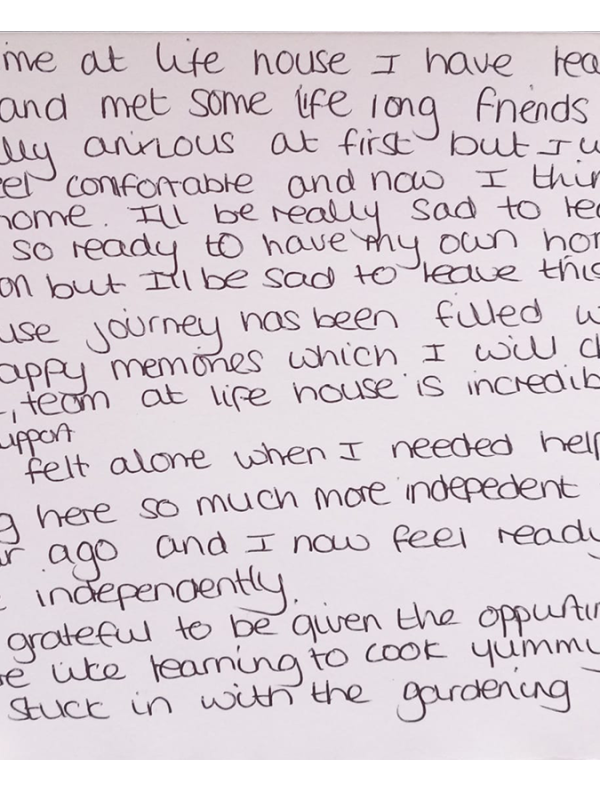 ime at life house I have lea
and met some life long friends
lly anxious at first but I w
eel comfortable and now I thin
home. I'll be really sad to lea
so ready to have my own hom
on but I'll be sad to leave this
use journey has been filled w
appy memories which I will ch
team at life house is incredib
upport
felt alone when I needed help
g here so much more indepedent
ar ago and I now feel ready
independently.
grateful to be given the oppurtin
e like learning to cook yummy
stuck in with the gardening